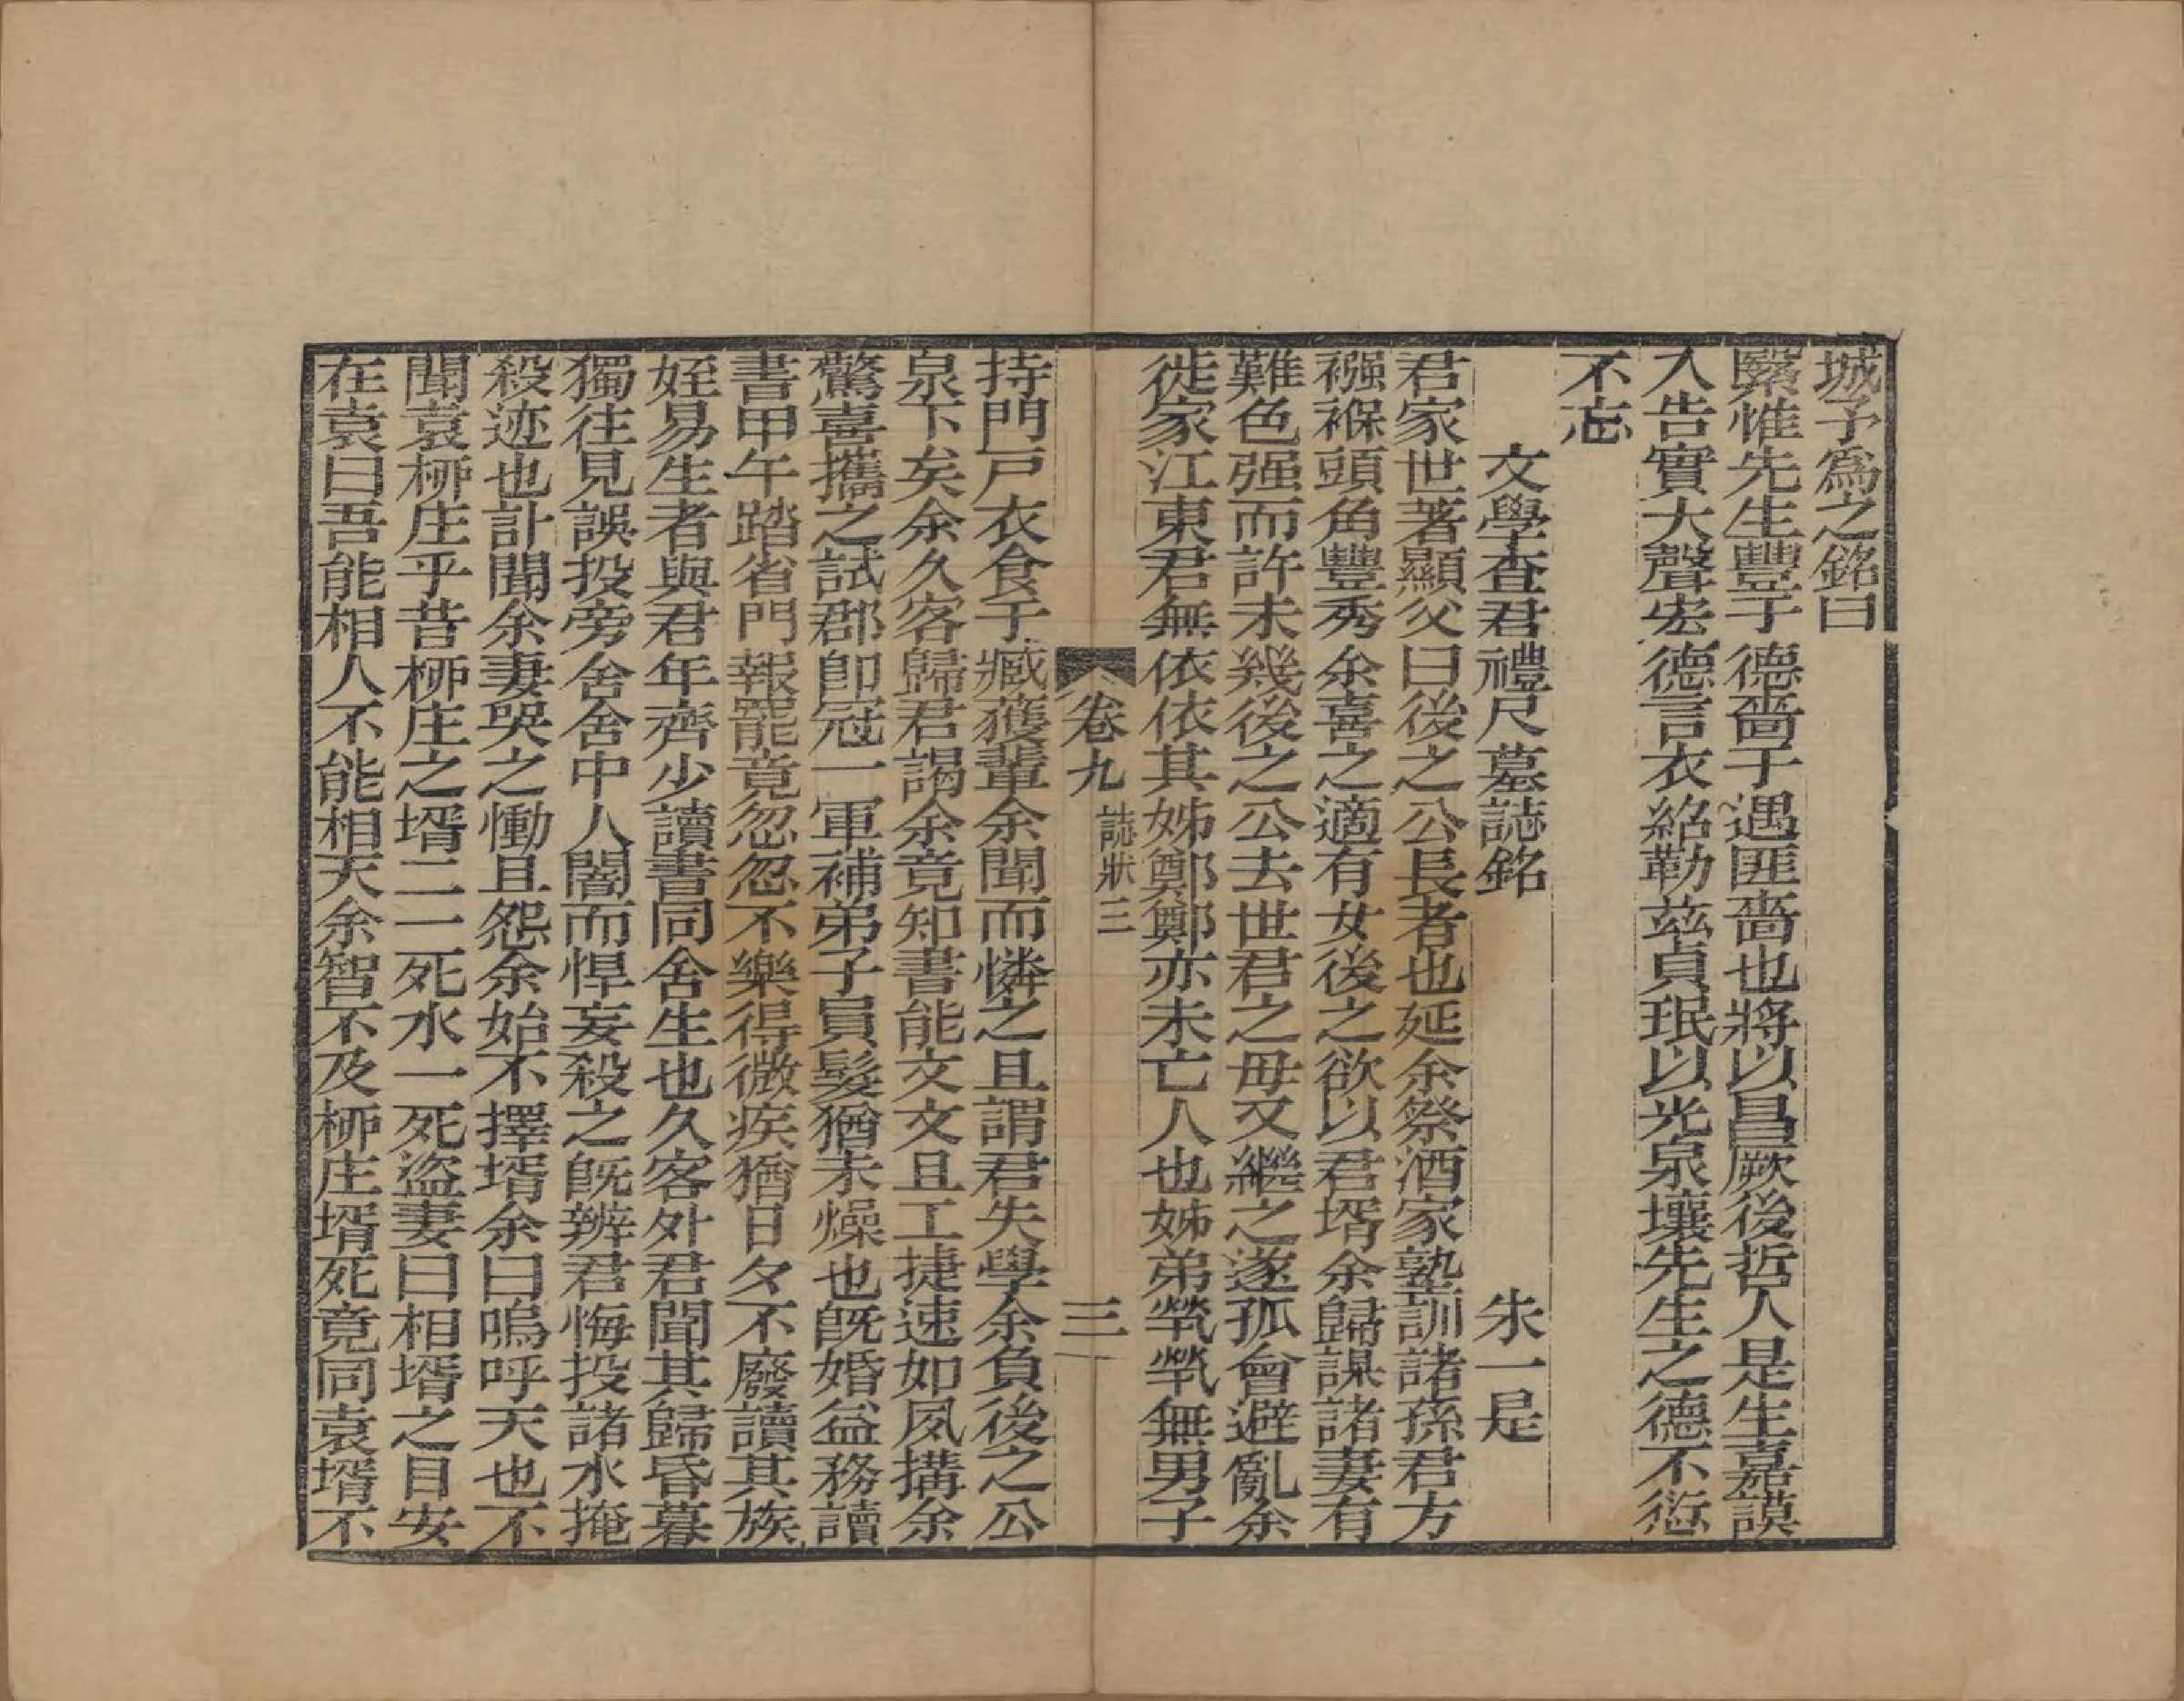 城予爲之銘曰
緊惟先生豐于德嗇于遇匪嗇也將以昌厥後哲人是生嘉謨
入告實大聲宏德言衣紹勒茲貞珉以光泉壤先生之德不愆
不忘
文學查君禮尺墓誌銘 朱一是
君家世著顯父曰後之公長者也延余祭酒家塾訓諸孫君方
襁褓頭角豐秀余喜之適有女後之欲以君壻余歸謀諸妻有
難色强而許未幾後之公去世君之母又繼之遂孤會避亂余
徙家江東君無依依其姊鄭鄭亦未亡人也姊弟煢煢無男子
卷九 誌狀三 三
持門戸衣食于臧獲輩余聞而憐之且謂君失學余負後之公
泉下矣余久客歸君謁余竟知書能文文且工捷速如夙搆余
驚喜攜之試郡卽冠一軍補弟子員髮猶未燥也旣婚益務讀
書甲午踏省門報罷竟忽忽不樂得微疾猶日夕不廢讀其族
姪易生者與君年齊少讀書同舍生也久客外君聞其歸昏暮
獨往見誤投旁舍舍中人闇而悍妄殺之旣辨君悔投諸水掩
殺迹也計聞余妻哭之慟且怨余始不擇壻余曰嗚呼天也不
聞袁柳庄乎昔柳庄之壻二一死水一死盜妻曰相壻之目安
在袁曰吾能相人不能相天余智不及柳庄壻死竟同袁壻不